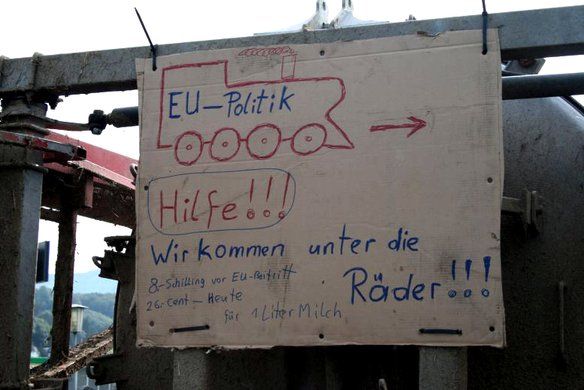 EU-Politik
Hilfe!!!
Wir kommen unter die
Räder!!!
8.-Schilling vor EU-Beitritt
26.-Cent - Heute
für 1 Liter Milch